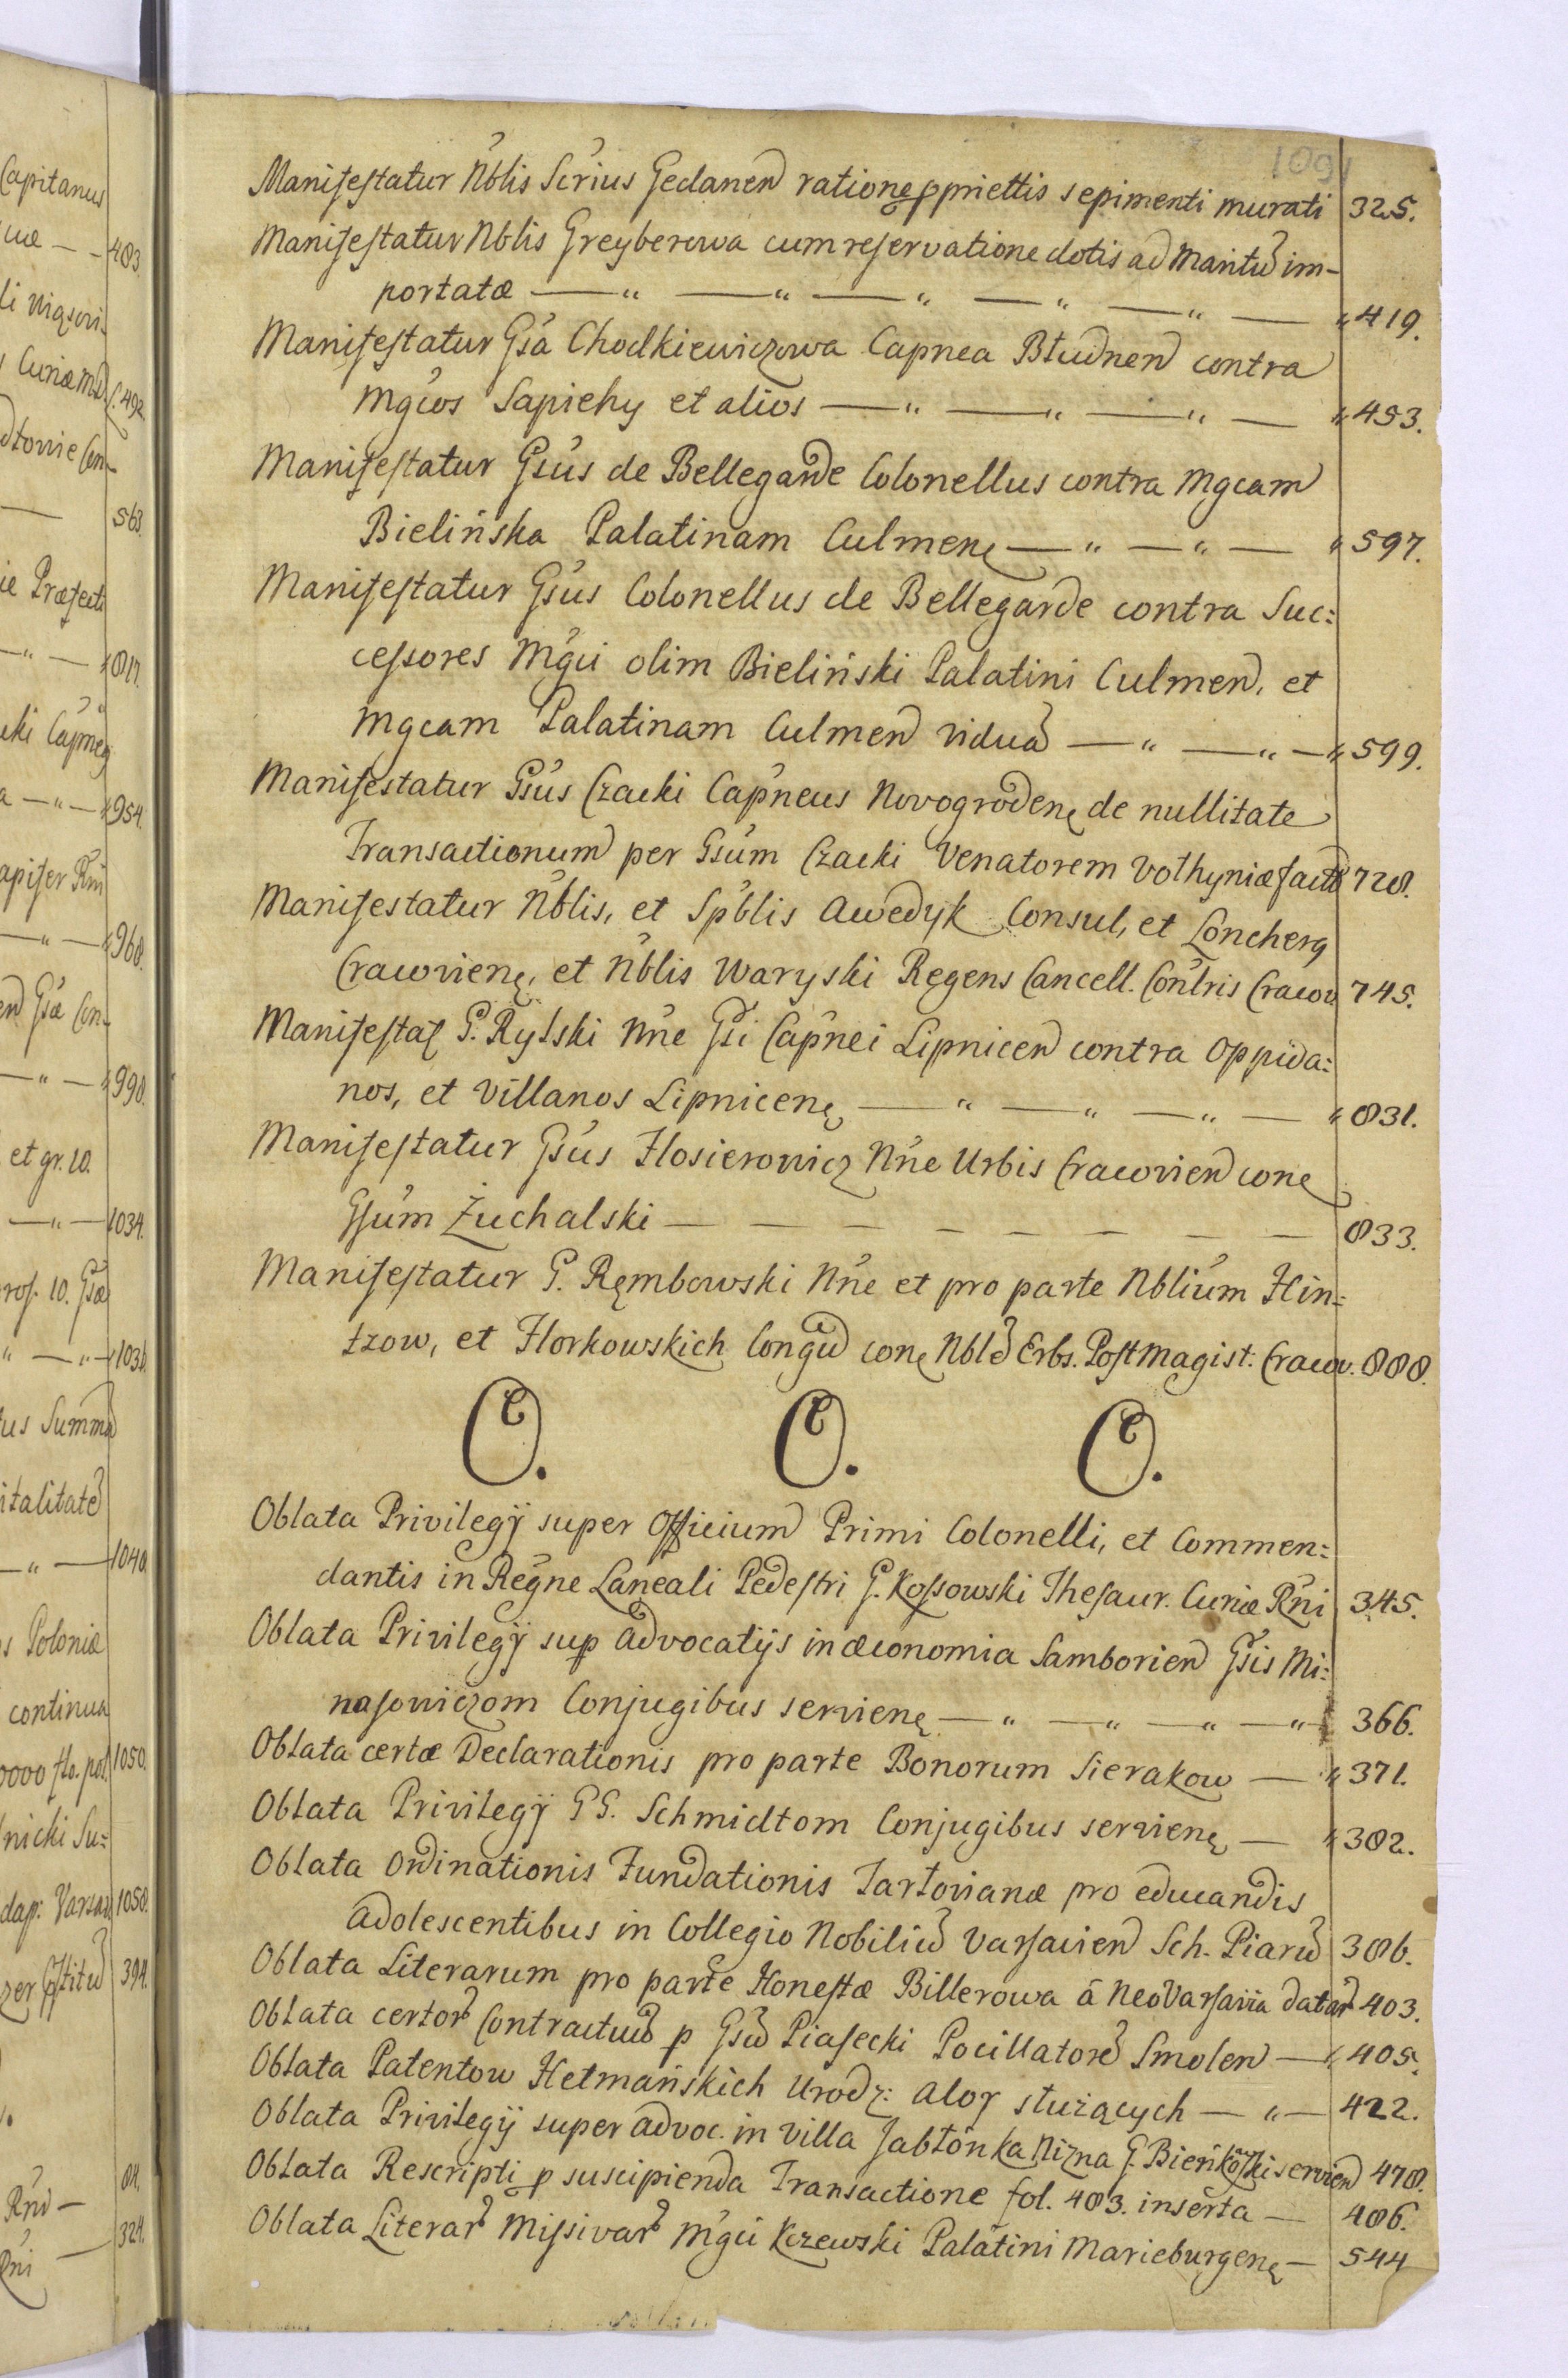 Capitanus
uæ — 483.
1091
Manifestatur Nblis Scrius Gedanen ratione ppriettis sepimenti murati 325.
Manifestatur Nblis Greyberowa cum reservatione dotis ad Maritũ im-
portatæ — " — " — " — " — " — " 419.
Manifestatur Gsa Chodkiewiczowa Capnea Błudnen contra
Mgcos Sapiehy et alios — " — " — " — " 453.
Manifestatur Gsus de Bellegarde Colonellus contra Mgcam
Bielińska Palatinam Culmen — " — " — " 597.
Manifestatur Gsus Colonellus de Bellegarde contra Suc:
cessores Mgci olim Bieliński Palatini Culmen, et
Mgcam Palatinam Culmen viduã — " — " — " 599.
Manifestatur Gsus Czacki Capneus Novogroden de nullitate
Transactionum per Gsum Czacki Venatorem Volhyniæ fact 728.
Manifestatur Nblis, et Spblis Awedyk Consul, et Loncherg
Cracovien, et Nblis Waryski Regens Cancell. Conlris Cracov 745.
Manifestat G. Rylski Nne Gsi Capnei Lipnicen contra Oppida:
nos, et Villanos Lipnicen — " — " — " — " 831.
Manifestatur Gsus Hosierowicz Nne Urbis Cracovien con
Gsum Żuchalski — — — — — — — 833.
Manifestatur G. Rembowski Nne et pro parte Nblium Hin:
tzow, et Horkowskich Congũ con Nblẽ Erbs. Postmagist: Cracov. 888.
O. O. O.
Oblata Privilegÿ super Officium Primi Colonelli, et Commen:
dantis in Regne Laneali Pedestri G. Kossowski Thesaur. Curiæ Rni 345.
Oblata Privilegÿ sup Advocatÿs in œconomia Samborien Gsis Mi:
nasowiczom Conjugibus servien — " — " — " — " 366.
Oblata certæ Declarationis pro parte Bonorum Sierakow — " 371.
Oblata Privilegÿ GG. Schmidtom Conjugibus servien — " 382.
Oblata Ordinationis Fundationis Tartoviana pro educandis
Adolescentibus in Collegio Nobiliũ Varsavien Sch. Piarũ 386.
Oblata Literarum pro parte Honestæ Billerowa á NeoVarsavia datar 403.
Oblata certor Contractuũ p Gsũ Piasecki Pocillatorẽ Smolen — " 405.
Oblata Patentow Hetmańskich Urodz: Aloy służących — " — 422.
Oblata Privilegÿ super Advoc. in Villa Jabłonka Nizna G. Bieńkoski servien 478.
Oblata Rescripti p suscipienda Transactione fol. 483. inserta — 486.
Oblata Literar Missivar Mgci Kczewski Palatini Marieburgen — 544